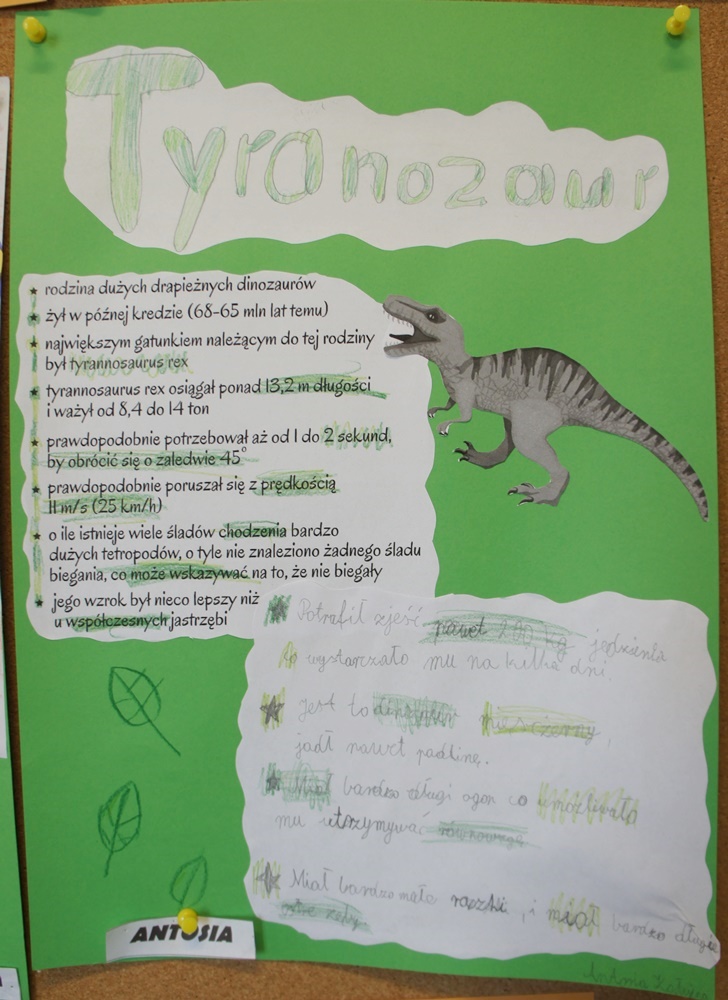 Tyranozaur
rodzina dużych drapieżnych dinozaurów
żył w późnej kredzie (68-65 mln lat temu)
największym gatunkiem należącym do tej rodziny
był tyrannosaurus rex
tyrannosaurus rex osiągał ponad 13,2 m długości
i ważył od 8,4 do 14 ton
prawdopodobnie potrzebował aż od 1 do 2 sekund,
by obrócić się o zaledwie 45°
prawdopodobnie poruszał się z prędkością
11 m/s (25 km/h)
o ile istnieje wiele śladów chodzenia bardzo
dużych tetropodów, o tyle nie znaleziono żadnego śladu
biegania, co może wskazywać na to, że nie biegały
jego wzrok był nieco lepszy niż
u współczesnych jastrzębi
Potrafił zjeść nawet 200 kg jedzienia
wystarczało mu na kilka dni.
Jest to dinozaur mięsożerny,
jadł nawet padlinę.
Miał bardzo długi ogon co umożliwało
mu utrzymywać równowagę.
Miał bardzo małe rączki, i miał bardzo długie
ostre zęby.
ANTOSIA